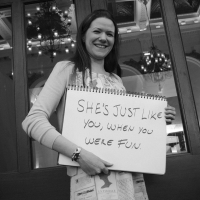 SHE'S JUST LIKE
YOU, WHEN YOU
WERE FUN.